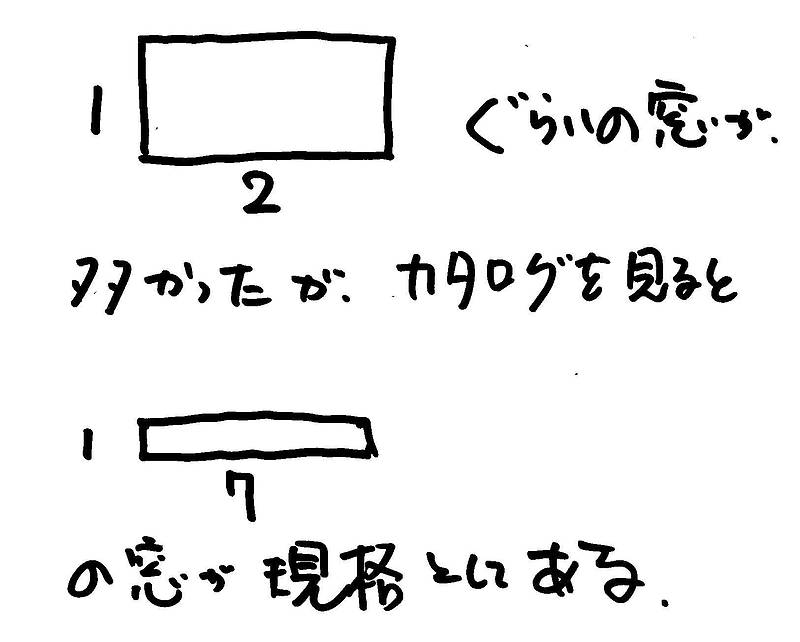 1
2
ぐらいの窓が、
多かったが、カタログを見ると
1
7
の窓が規格としてある。